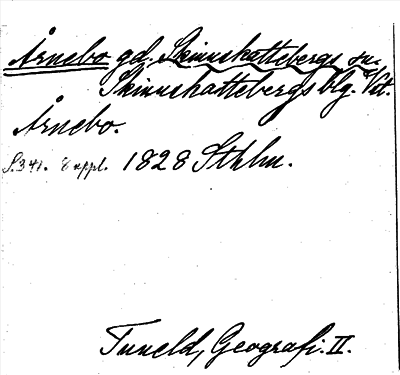 Årnebo gd. Skinnskattebergs sn.
Skinnskattebergs blg. Vst.
Årnebo.
S. 341. 8 uppl. 1828 Sthlm.
Tuneld, Geografi. II.